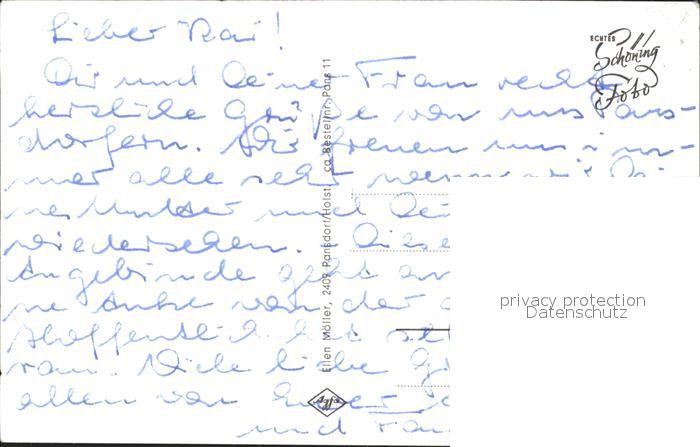 Lieber Kai!
Dir und Deiner Frau recht
herzliche Grüße von uns Pans-
dorfern. Wir freuen uns im-
mer alle sehr wenn wir Dei-
ne Mutter und Dei
wiedersehen. Diese
Angebinde geht an
ne Anke von der
Hoffentlich hat sie
ran. Viele liebe Gr
allen von Eurer
und
ECHTES
Schöning
Foto
Ellen Möller, 2409 Pansdorf/Holst. ca Bestellnr. Pans 11
Agfa
privacy protection
Datenschutz